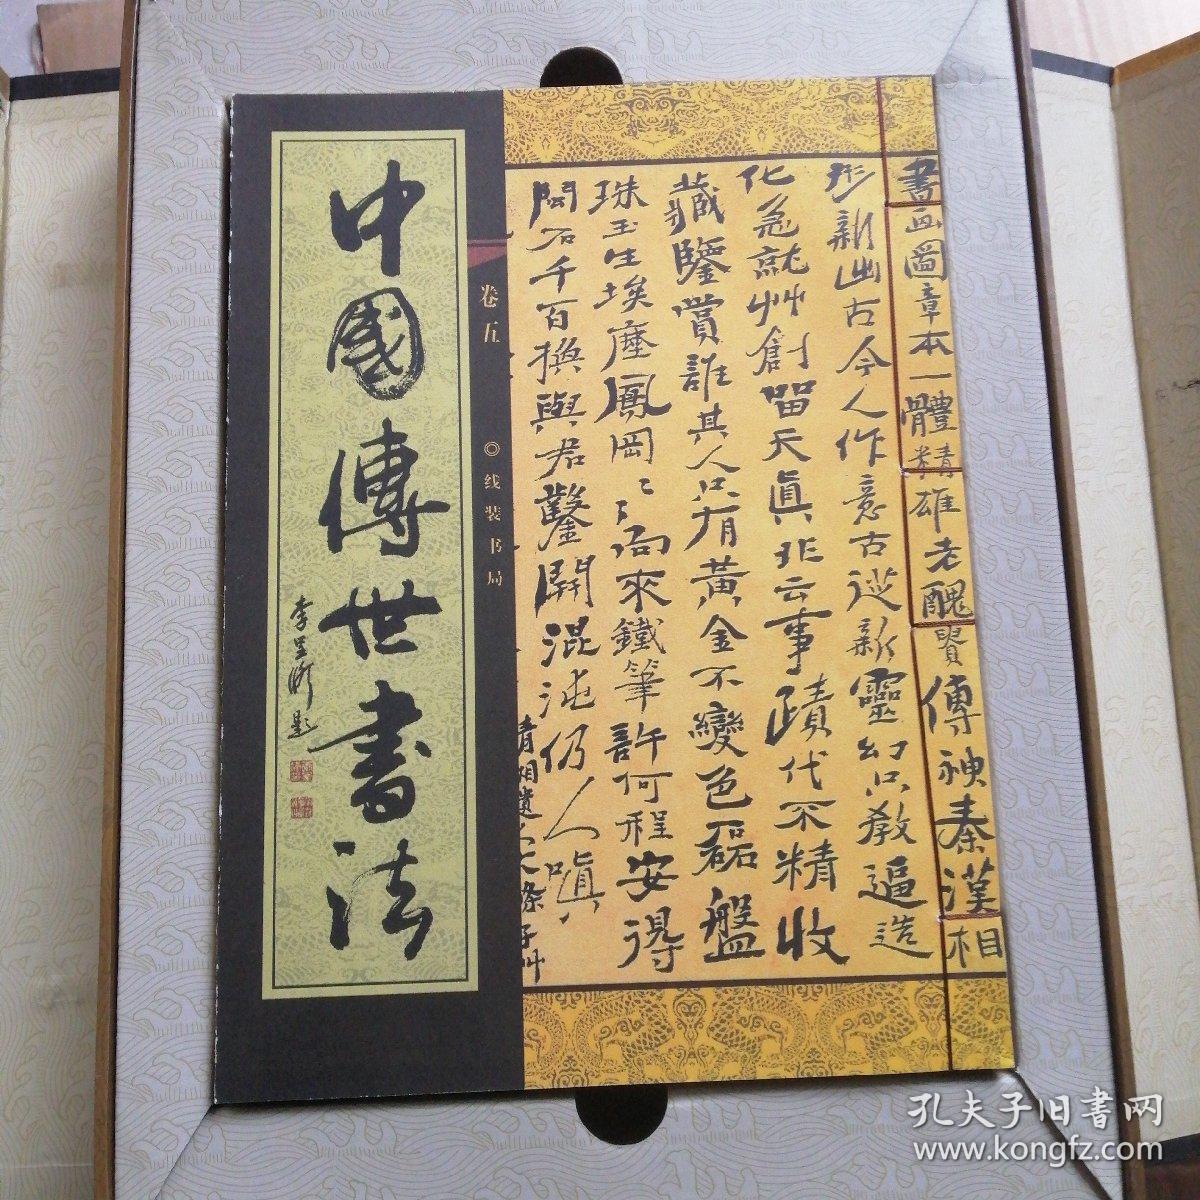 中國傳世書法
卷五
◎线装书局
書画圖章本一體精雄老醜貴傳神秦漢相
形新出古今人作意古從新靈幻只教逼造
化急就艸創留天真非云事蹟代不精收
藏鑒賞誰其人只有黃金不變色磊盤
珠玉生埃塵鳳岡〻〻向來鐵筆許何程安得
閑石千百換與君鑿開混沌仍人嗔
清湘遺人大滌子艸
孔夫子旧书网
www.kongfz.com